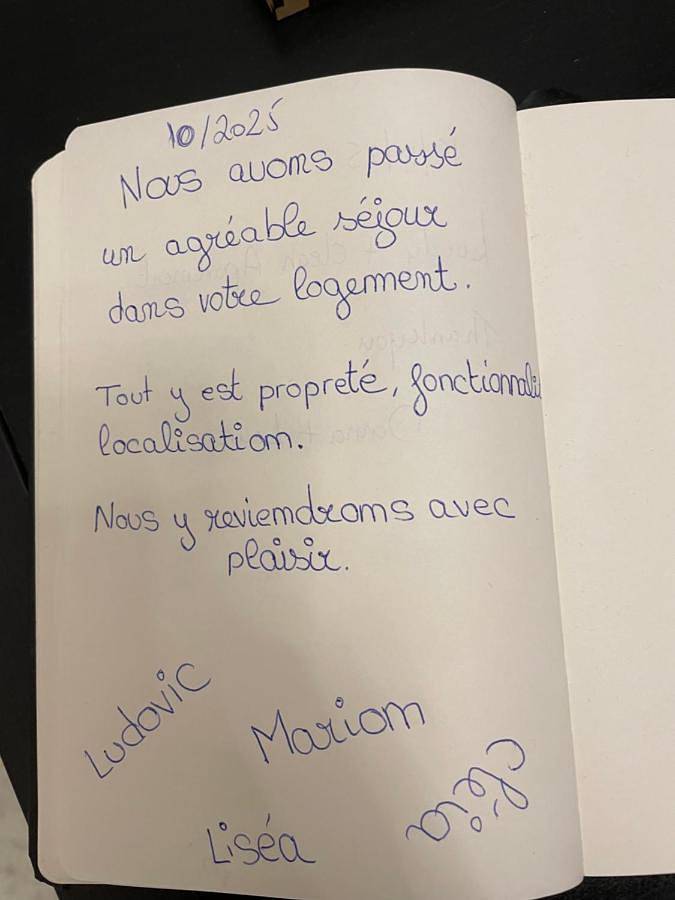 10/2025
Nous avons passé
un agréable séjour
dans votre logement.
Tout y est propreté, fonctionnali
localisation.
Nous y reviendrons avec
plaisir.
Ludovic
Marion
Clélia
Liséa